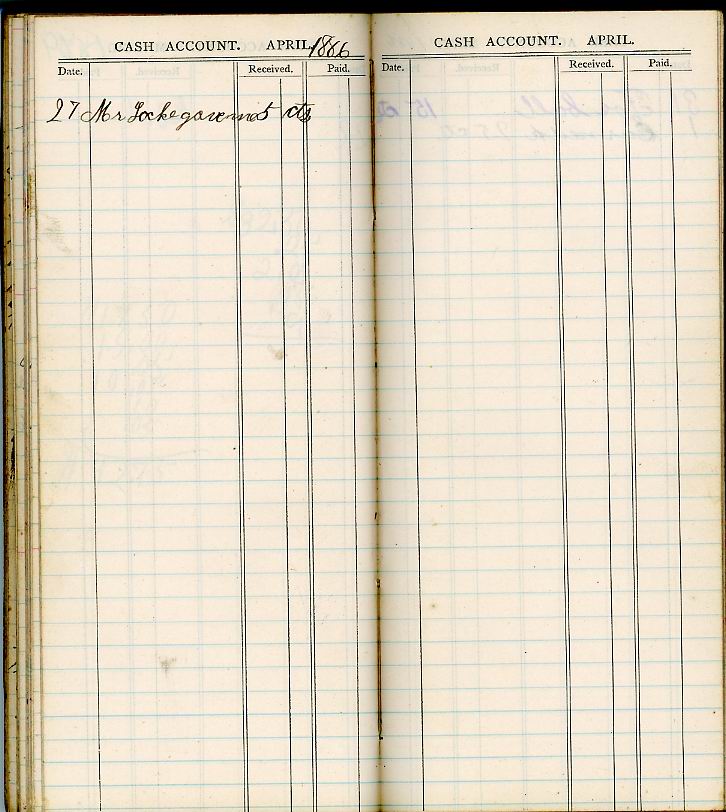 CASH ACCOUNT. APRIL. 1886
Date. Received. Paid.
27 Mr Locke gave me 5 cts
CASH ACCOUNT. APRIL.
Date. Received. Paid.